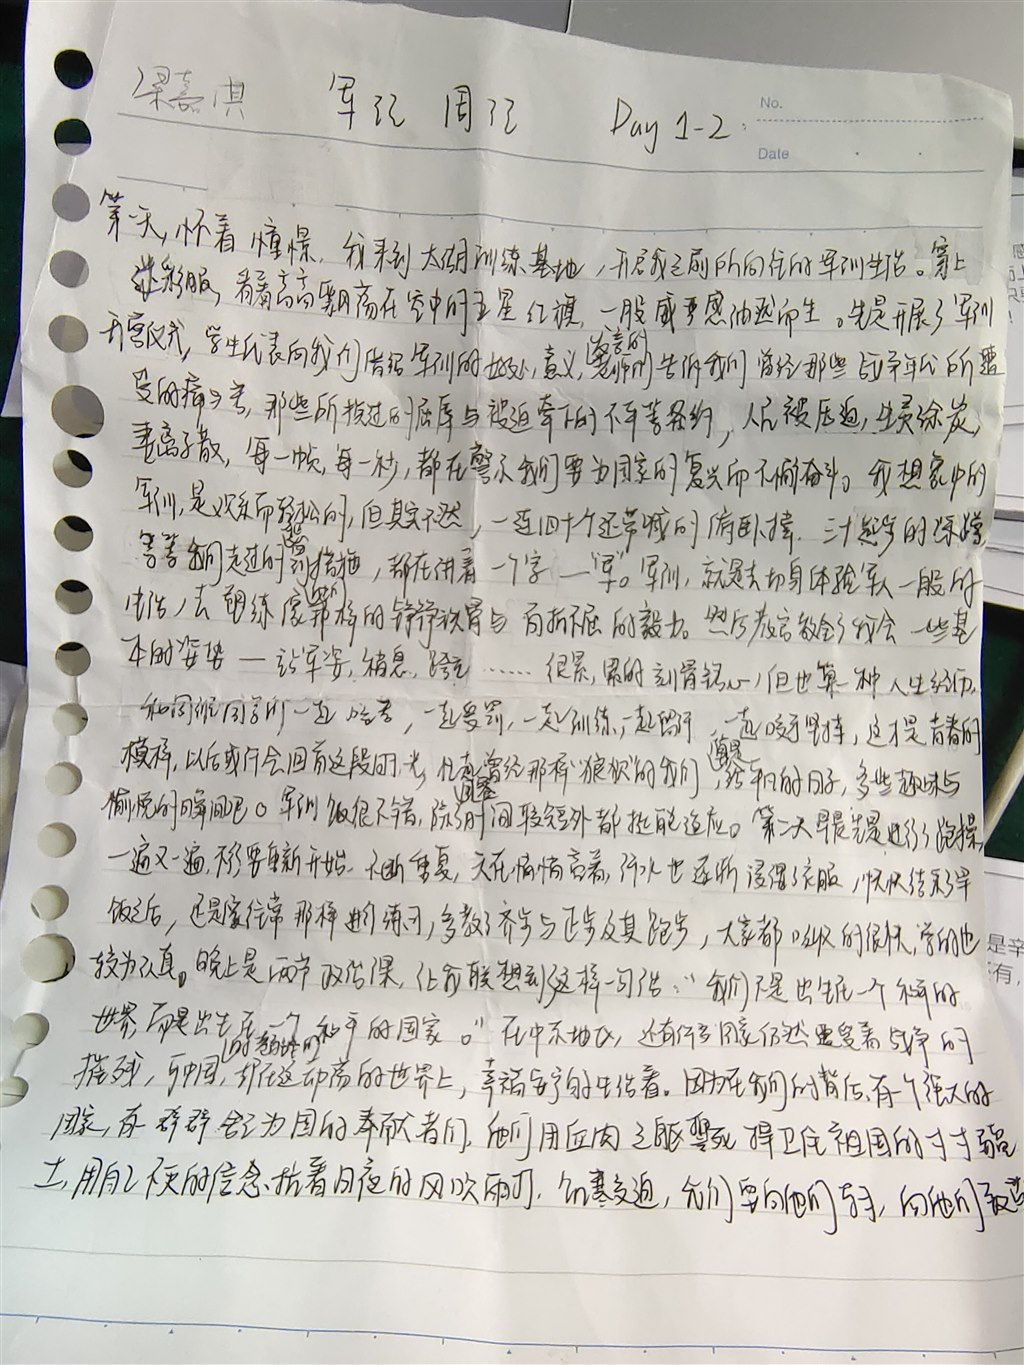 梁嘉淇 军训 周记 Day 1-2
No.
Date
第一天,怀着憧憬,我来到太湖训练基地,开启我之前所向往的军训生活。穿上
迷彩服,看着高高飘荡在空中的五星红旗,一股威严感油然而生。先是开展了军训
开营仪式,学生代表向我们介绍军训的好处,意义,发言的老师们告诉我们曾经那些战争年代所遭
受的痛苦,那些所挨过的屈辱与被迫牵下的不平等条约,人民被压迫,生灵涂炭,
妻离子散,每一帧,每一秒,都在警示我们要为国家的复兴而不懈奋斗。我想象中的
军训,是欢乐而轻松的,但其实不然,一连四十个还带喊的俯卧撑,三十起步的深蹲
等等我们走过的惩罚措施,都在讲着一个字—“军”。军训,就是去切身体验军人一般的
生活,去锻炼像他们那样的铮铮铁骨与百折不屈的毅力。然后教官教会了我会一些基
本的姿势—站军姿,稍息,跨立……很累,累的刻骨铭心,但也算一种人生经历,
和同班同学们一起吃苦,一起受罚,一起训练,一起陪伴,一起咬牙坚持,这才是青春的
模样,以后或许会回首这段时光,回想曾经那样“狼狈”的我们,给平凡的日子,多些趣味与
愉悦的瞬间吧。军训饭很不错,除了时间较短外都挺能适应。第二天早晨先是进行了跑操,
一遍又一遍,不行要重新开始,不断重复,天在悄悄亮着,汗水也逐渐浸湿了衣服,快快结束了早
饭之后,还是像往常那样的练习,多教了齐步与正步及其跑步,大家都吸收的很快,学的也
较为认真。晚上是两节政治课,让我联想到这样一句话:“我们不是出生在一个和平的
世界,而是出生在一个和平的国家。”在中东地区,还有许多国家仍然遭受着战争的
摧残,而中国,却在这动荡的世界上,幸福安宁的生活着。因为在我们的背后,有一个强大的
国家,有群群舍己为国的奉献者们,他们用血肉之躯誓死捍卫住祖国的寸寸疆
土,用自己不灭的信念,抗着日夜的风吹雨打,饥寒交迫,我们要向他们学习,向他们致敬